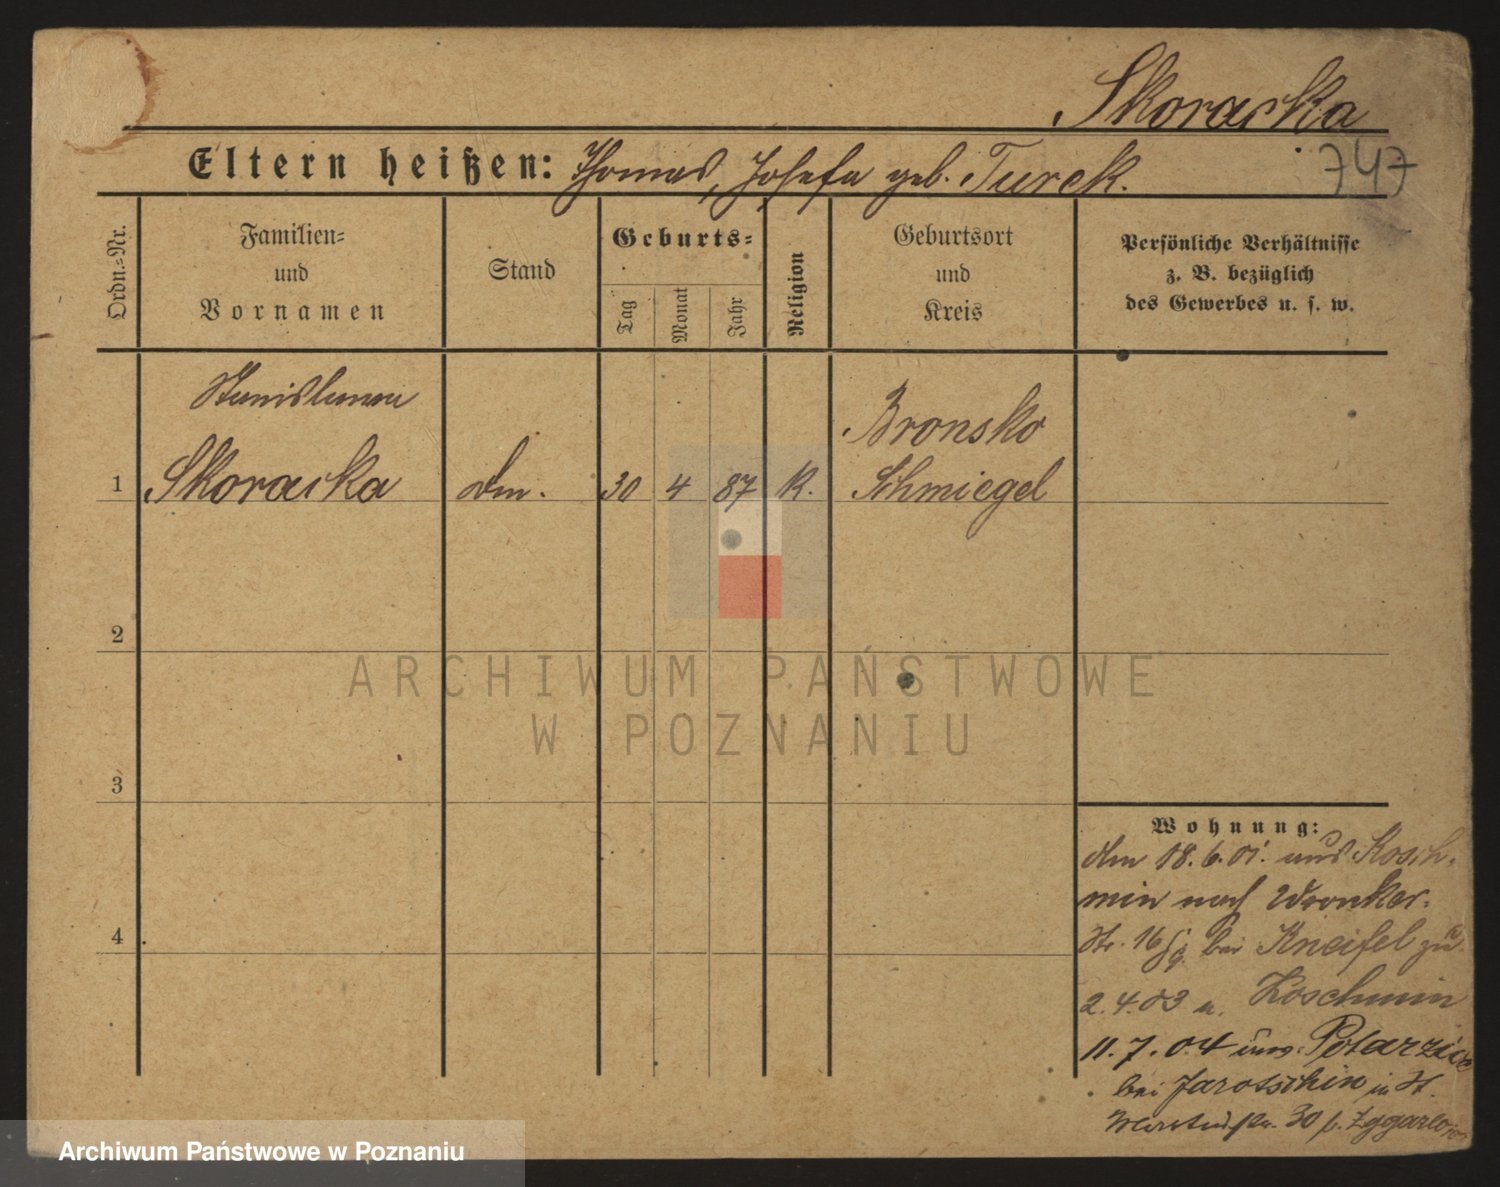 Skoraska
747
Eltern heißen: Thomas, Josefa geb. Turek.
Ordn.-Nr.
Familien-
und
Vornamen
Stand
Geburts-
Tag
Monat
Jahr
Religion
Geburtsort
und
Kreis
Persönliche Verhältnisse
z. B. bezüglich
des Gewerbes u. s. w.
Stanislawa
1 Skoraska
30 4 87 K.
Bronsko
Schmiegel
2
3
4
ARCHIWUM PAŃSTWOWE
W POZNANIU
Wohnung:
18.6.01. aus Kosch-
min nach Wronker-
Str. 16 bei Kneifel
2.4.03 n. Koschmin
11.7.04 aus
bei Jarotschin in St.
Martinstr. 30
Archiwum Państwowe w Poznaniu